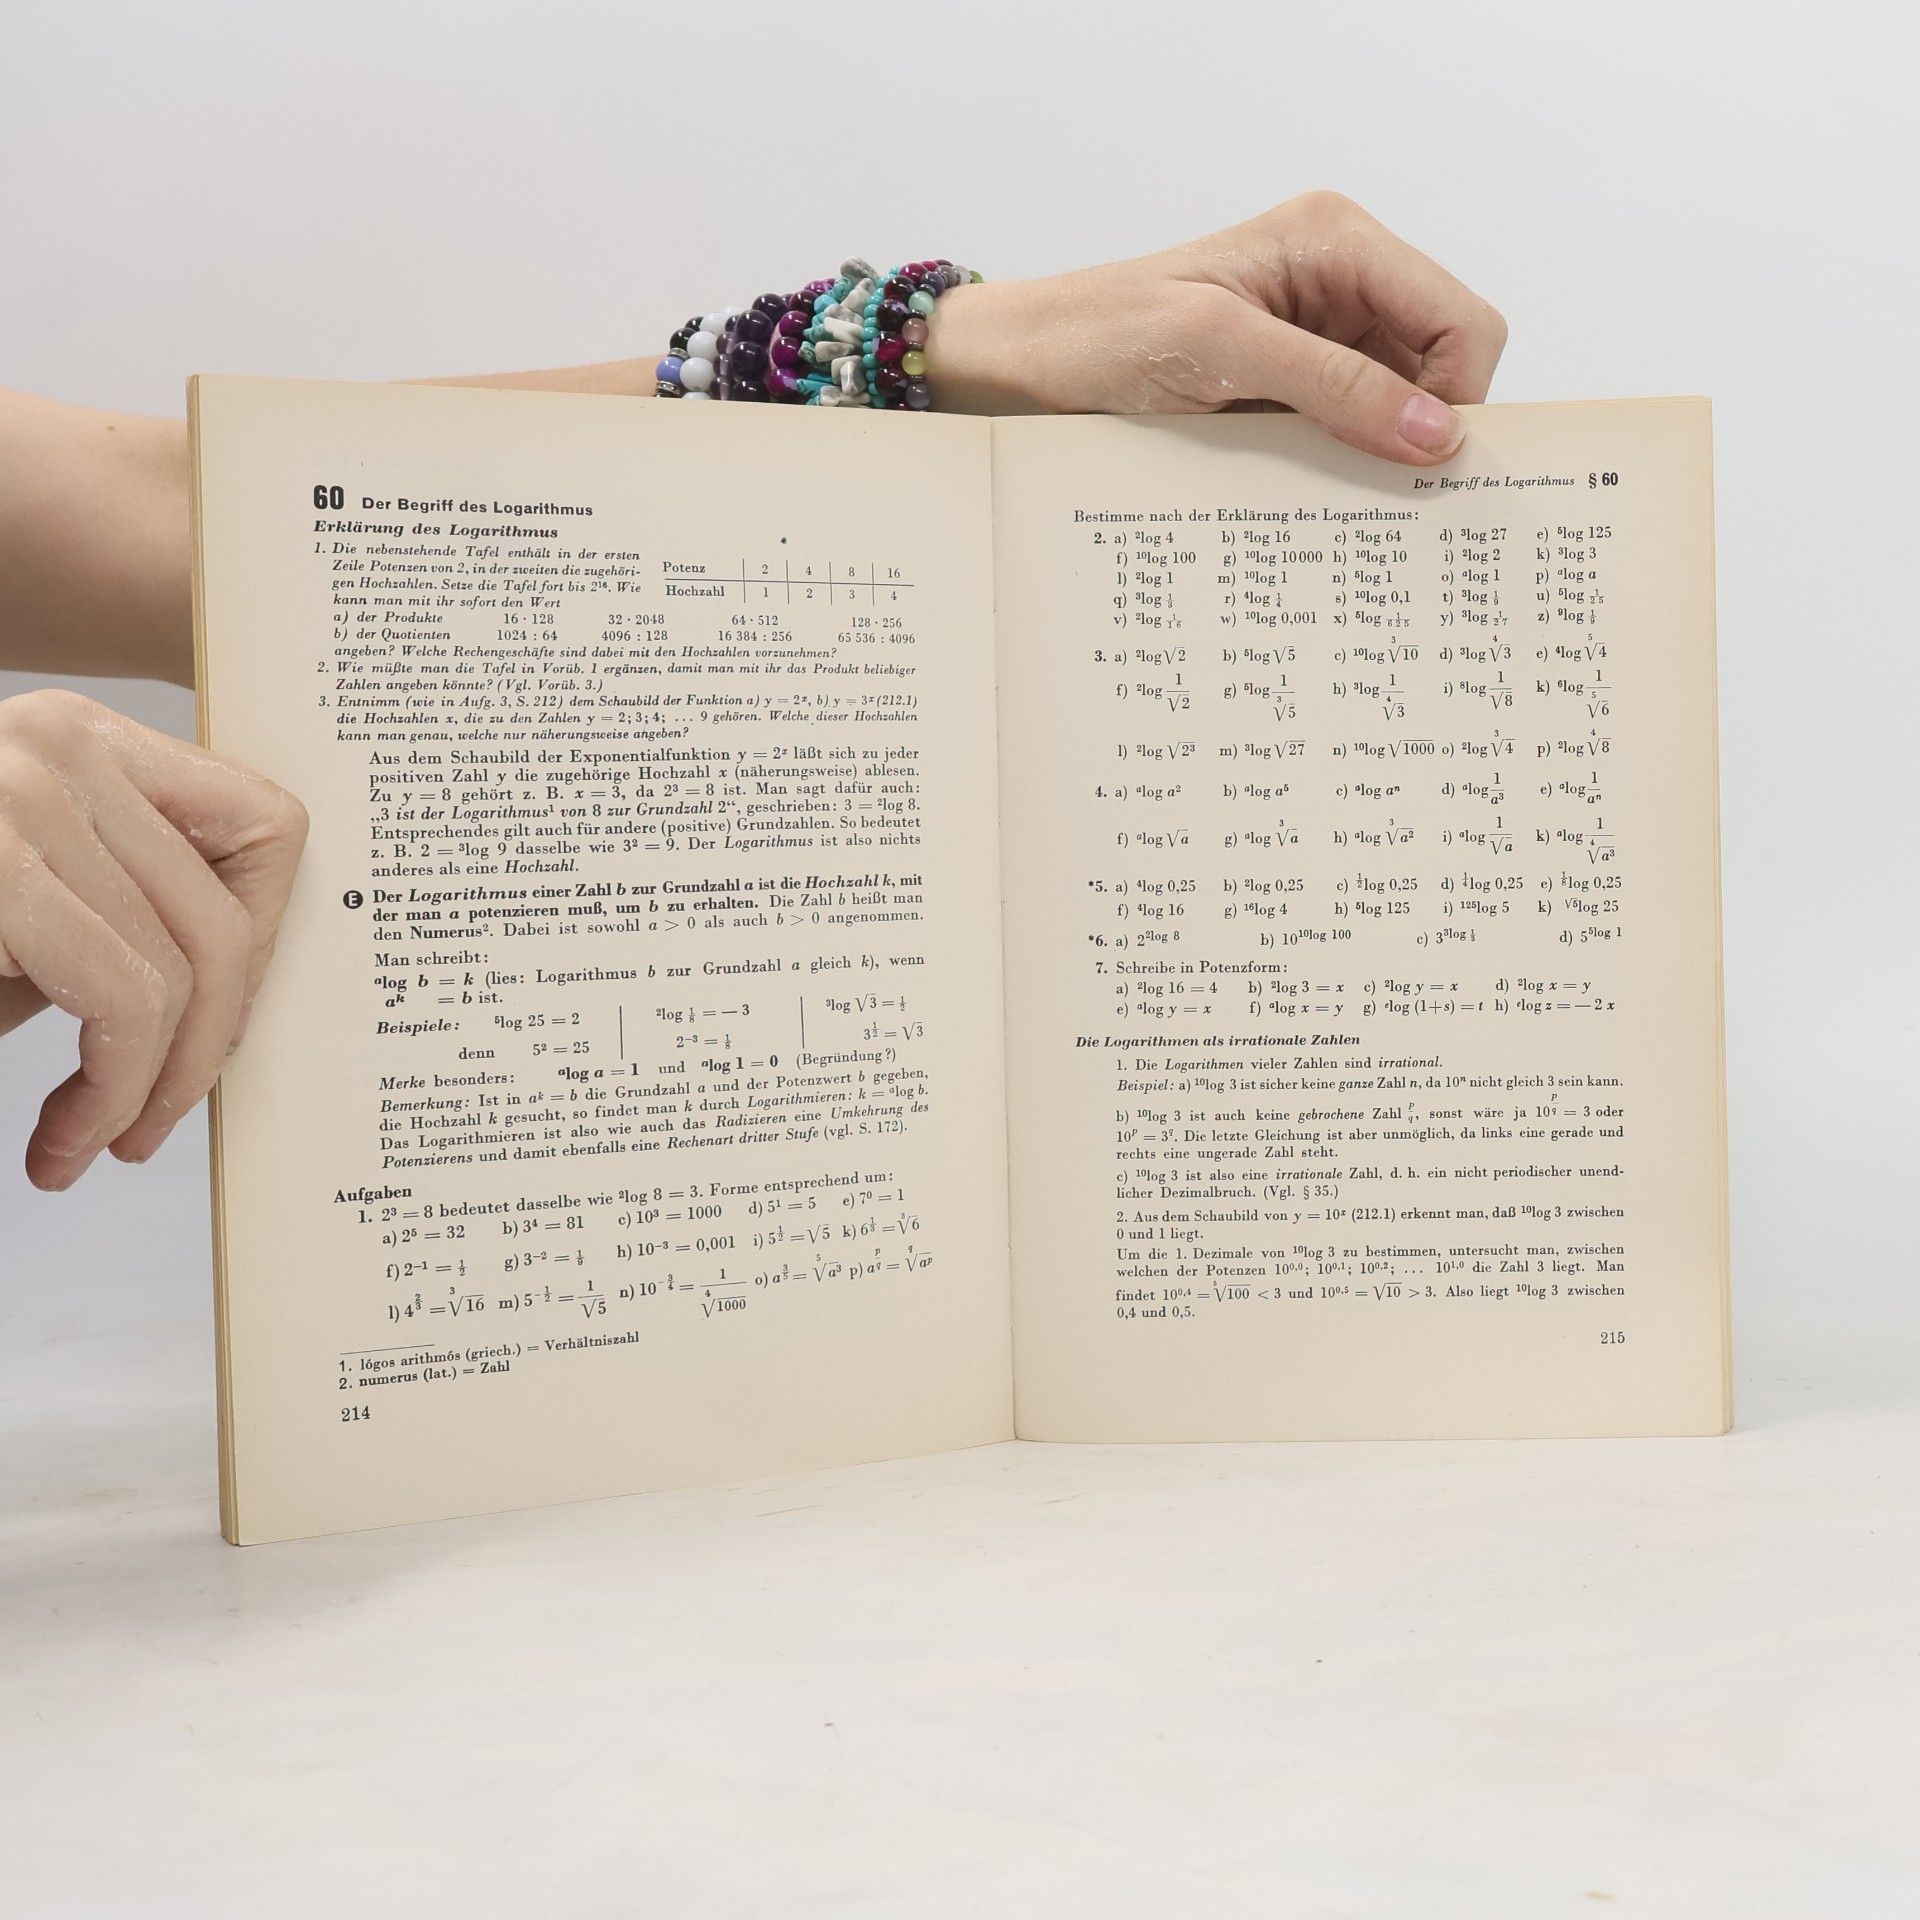 60 Der Begriff des Logarithmus
Erklärung des Logarithmus
1. Die nebenstehende Tafel enthält in der ersten
Zeile Potenzen von 2, in der zweiten die zugehöri-
gen Hochzahlen. Setze die Tafel fort bis 2¹⁶. Wie
kann man mit ihr sofort den Wert
Potenz 2 4 8 16
Hochzahl 1 2 3 4
a) der Produkte 16 · 128 32 · 2048 64 · 512 128 · 256
b) der Quotienten 1024 : 64 4096 : 128 16 384 : 256 65 536 : 4096
angeben? Welche Rechengeschäfte sind dabei mit den Hochzahlen vorzunehmen?
2. Wie müßte man die Tafel in Vorüb. 1 ergänzen, damit man mit ihr das Produkt beliebiger
Zahlen angeben könnte? (Vgl. Vorüb. 3.)
3. Entnimm (wie in Aufg. 3, S. 212) dem Schaubild der Funktion a) y = 2ˣ, b) y = 3ˣ (212.1)
die Hochzahlen x, die zu den Zahlen y = 2; 3; 4; ... 9 gehören. Welche dieser Hochzahlen
kann man genau, welche nur näherungsweise angeben?
Aus dem Schaubild der Exponentialfunktion y = 2ˣ läßt sich zu jeder
positiven Zahl y die zugehörige Hochzahl x (näherungsweise) ablesen.
Zu y = 8 gehört z. B. x = 3, da 2³ = 8 ist. Man sagt dafür auch:
„3 ist der Logarithmus¹ von 8 zur Grundzahl 2“, geschrieben: 3 = ²log 8.
Entsprechendes gilt auch für andere (positive) Grundzahlen. So bedeutet
z. B. 2 = ³log 9 dasselbe wie 3² = 9. Der Logarithmus ist also nichts
anderes als eine Hochzahl.
E Der Logarithmus einer Zahl b zur Grundzahl a ist die Hochzahl k, mit
der man a potenzieren muß, um b zu erhalten. Die Zahl b heißt man
den Numerus². Dabei ist sowohl a > 0 als auch b > 0 angenommen.
Man schreibt:
ᵃlog b = k (lies: Logarithmus b zur Grundzahl a gleich k), wenn
aᵏ = b ist.
Beispiele: ⁵log 25 = 2 | ²log 1/8 = − 3 | ³log √3 = 1/2
denn 5² = 25 | 2⁻³ = 1/8 | 3^(1/2) = √3
Merke besonders: ᵃlog a = 1 und ᵃlog 1 = 0 (Begründung?)
Bemerkung: Ist in aᵏ = b die Grundzahl a und der Potenzwert b gegeben,
die Hochzahl k gesucht, so findet man k durch Logarithmieren: k = ᵃlog b.
Das Logarithmieren ist also wie auch das Radizieren eine Umkehrung des
Potenzierens und damit ebenfalls eine Rechenart dritter Stufe (vgl. S. 172).
Aufgaben
1. 2³ = 8 bedeutet dasselbe wie ²log 8 = 3. Forme entsprechend um:
a) 2⁵ = 32 b) 3⁴ = 81 c) 10³ = 1000 d) 5¹ = 5 e) 7⁰ = 1
f) 2⁻¹ = 1/2 g) 3⁻² = 1/9 h) 10⁻³ = 0,001 i) 5^(1/2) = √5 k) 6^(1/3) = ³√6
l) 4^(2/3) = ³√16 m) 5^(−1/2) = 1/√5 n) 10^(−3/4) = 1/⁴√1000 o) a^(3/5) = ⁵√a³ p) a^(p/q) = ^q√aᵖ
1. lógos arithmós (griech.) = Verhältniszahl
2. numerus (lat.) = Zahl
214
Der Begriff des Logarithmus § 60
Bestimme nach der Erklärung des Logarithmus:
2. a) ²log 4 b) ²log 16 c) ²log 64 d) ³log 27 e) ⁵log 125
f) ¹⁰log 100 g) ¹⁰log 10000 h) ¹⁰log 10 i) ²log 2 k) ³log 3
l) ²log 1 m) ¹⁰log 1 n) ⁵log 1 o) ᵃlog 1 p) ᵃlog a
q) ³log 1/3 r) ⁴log 1/4 s) ¹⁰log 0,1 t) ³log 1/9 u) ⁵log 1/25
v) ²log 1/16 w) ¹⁰log 0,001 x) ⁵log 1/625 y) ³log 1/27 z) ⁹log 1/9
3. a) ²log √2 b) ⁵log √5 c) ¹⁰log ³√10 d) ³log ⁴√3 e) ⁴log ⁵√4
f) ²log 1/√2 g) ⁵log 1/³√5 h) ³log 1/⁴√3 i) ⁸log 1/√8 k) ⁶log 1/⁵√6
l) ²log √2³ m) ³log √27 n) ¹⁰log √1000 o) ²log ³√4 p) ²log ⁴√8
4. a) ᵃlog a² b) ᵃlog a⁵ c) ᵃlog aⁿ d) ᵃlog 1/a³ e) ᵃlog 1/aⁿ
f) ᵃlog √a g) ᵃlog ³√a h) ᵃlog ³√a² i) ᵃlog 1/√a k) ᵃlog 1/⁴√a³
*5. a) ⁴log 0,25 b) ²log 0,25 c) ^(1/2)log 0,25 d) ^(1/4)log 0,25 e) ^(1/8)log 0,25
f) ⁴log 16 g) ¹⁶log 4 h) ⁵log 125 i) ¹²⁵log 5 k) ^(√5)log 25
*6. a) 2^(²log 8) b) 10^(¹⁰log 100) c) 3^(³log 1/3) d) 5^(⁵log 1)
7. Schreibe in Potenzform:
a) ²log 16 = 4 b) ²log 3 = x c) ²log y = x d) ²log x = y
e) ᵃlog y = x f) ᵃlog x = y g) ᵉlog (1+s) = t h) ᵉlog z = − 2 x
Die Logarithmen als irrationale Zahlen
1. Die Logarithmen vieler Zahlen sind irrational.
Beispiel: a) ¹⁰log 3 ist sicher keine ganze Zahl n, da 10ⁿ nicht gleich 3 sein kann.
b) ¹⁰log 3 ist auch keine gebrochene Zahl p/q, sonst wäre ja 10^(p/q) = 3 oder
10ᵖ = 3^q. Die letzte Gleichung ist aber unmöglich, da links eine gerade und
rechts eine ungerade Zahl steht.
c) ¹⁰log 3 ist also eine irrationale Zahl, d. h. ein nicht periodischer unend-
licher Dezimalbruch. (Vgl. § 35.)
2. Aus dem Schaubild von y = 10ˣ (212.1) erkennt man, daß ¹⁰log 3 zwischen
0 und 1 liegt.
Um die 1. Dezimale von ¹⁰log 3 zu bestimmen, untersucht man, zwischen
welchen der Potenzen 10^0,0; 10^0,1; 10^0,2; ... 10^1,0 die Zahl 3 liegt. Man
findet 10^0,4 = ⁵√100 < 3 und 10^0,5 = √10 > 3. Also liegt ¹⁰log 3 zwischen
0,4 und 0,5.
215